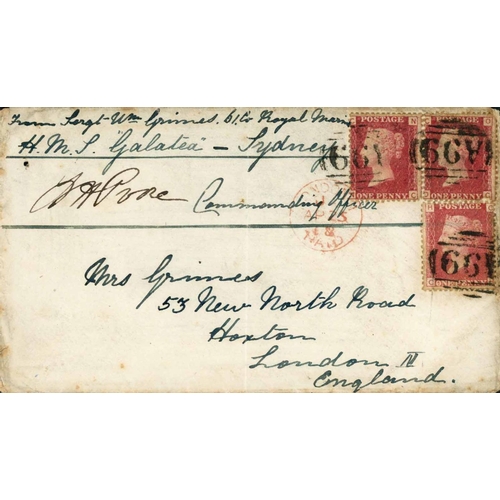 From Sergt. Wm Grimes. 61 Co Royal Marin
H.M.S "Galatea" - Sydney
Commanding Officer
Mrs Grimes
53 New North Road
Hoxton
London N
England.
POSTAGE
ONE PENNY
POSTAGE
ONE PENNY
POSTAGE
ONE PENNY
A99
A99
A99
PAID